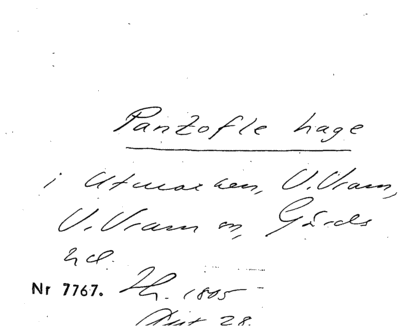 Pantofle hage
i Utmarken, V. Vram,
V. Vram sn, Gärds
hd.
Nr 7767. Th. 1805
Akt 28.